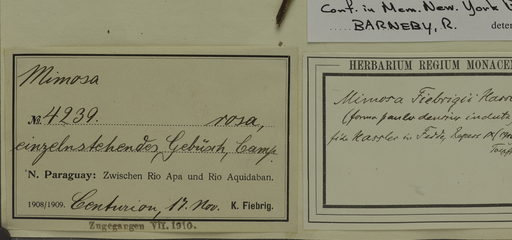 Conf. in Mem. New. York
BARNEBY, R.
Mimosa
No. 4239. rosa,
einzelnstehendes Gebüsch, Camp.
N. Paraguay: Zwischen Rio Apa und Rio Aquidaban.
1908/1909. Centurion, 17. Nov. K. Fiebrig.
Zugegangen VII. 1910.
HERBARIUM REGIUM MONACEN
Mimosa Fiebrigii Hassl
(forma paulo densius induta
fide Hassler in Fedde, Repert. IX